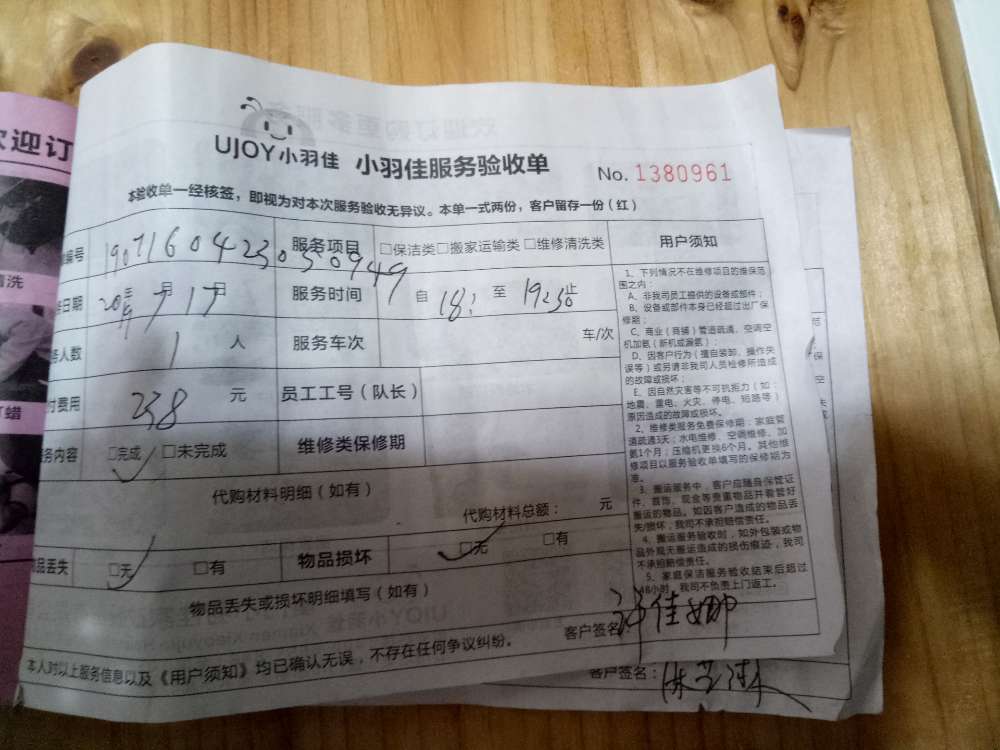 迎订
UJOY小羽佳 小羽佳服务验收单 No. 1380961
本验收单一经核签，即视为对本次服务验收无异议。本单一式两份，客户留存一份（红）
编号 1907160423050949 服务项目 □保洁类□搬家运输类□维修清洗类 用户须知
日期 2019年7月17日 服务时间 自 18: 至 1923 止
人数 1 人 服务车次 车/次
付费用 238 元 员工工号（队长）
务内容 □完成 □未完成 维修类保修期
代购材料明细（如有）
代购材料总额： 元
品丢失 □无 □有 物品损坏 □无 □有
物品丢失或损坏明细填写（如有）
1、下列情况不在维修项目的维保范
围之内：
A、非我司员工提供的设备或部件；
B、设备或部件本身已经超过出厂保
修期；
C、商业（商铺）管道疏通、空调空
机加氨（新机或漏氨）；
D、因客户行为（擅自装卸、操作失
误等）或另请非我司人员检修所造成
的故障或损坏；
E、因自然灾害等不可抗拒力（如：
地震、雷电、火灾、停电、短路等）
原因造成的故障或损坏。
2、维修类服务免费保修期：家庭管
道疏通3天；水电维修、空调维修、加
氨1个月；压缩机更换6个月。其他维
修项目以服务验收单填写的保修期为
准。
3、搬运服务中，客户应随身保管证
件、首饰、现金等贵重物品并看管好
搬运的物品。如因客户造成的物品丢
失/损坏，我司不承担赔偿责任。
4、搬运服务验收时，如外包装或物
品外观无搬运造成的损伤痕迹，我司
不承担赔偿责任。
5、家庭保洁服务验收结束后超过
48小时，我司不负责上门返工。
客户签名：许佳娜
本人对以上服务信息以及《用户须知》均已确认无误，不存在任何争议纠纷。
客户签名：
清洗
打蜡